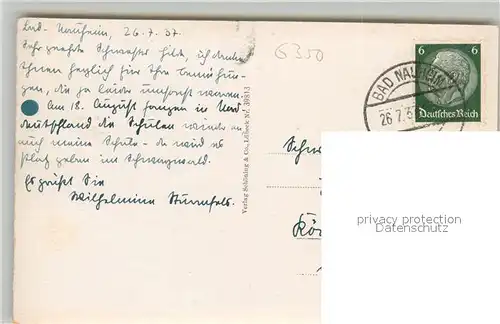 Bad-Nauheim, 26.7.37.
Sehr geehrte Schwester Hilde, ich danke
Ihnen herzlich für Ihre Bemühun-
gen, die ja leider umsonst waren.
Am 18. August fangen in Nord-
deutschland die Schulen wieder an
auch meine Schule - da wird es
Platz geben im Schwarzwald.
Es grüßt Sie
Wilhelmine Sturmfels.
6350
Verlag Schöning & Co., Lübeck Nr. 39813
6 6
Deutsches Reich
BAD NAUHEIM
26.7.3
Schw
privacy protection
Datenschutz